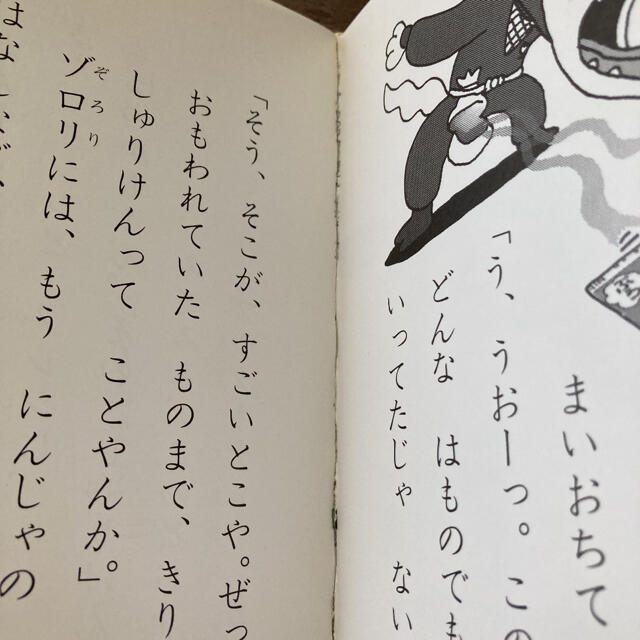 まいおちて
「う、うおーっ。この
どんな はものでも
いってたじゃ ない
「そう、そこが、すごいとこや。ぜっ
おもわれていた ものまで、きり
しゅりけんって ことやんか。」
ゾロリには、もう にんじゃの
ぞろり
はな